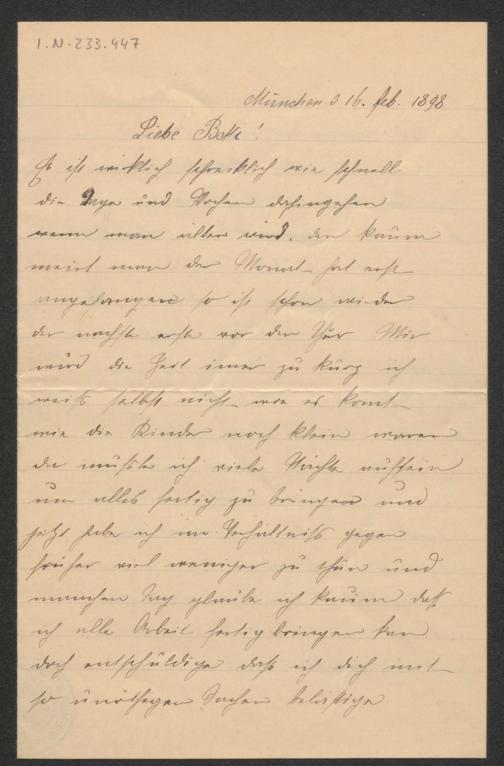 I.N.233.447
München d 16. Feb. 1898
Liebe
Es ist wirklich schrecklich wie schnell
die Tage und Wochen dahingehen
wenn man älter wird. den kaum
meint man der Monat hat erst
angefangen so ist schon wieder
der nächste erste vor der Thür Mir
wird die Zeit imer zu kurz ich
weiß selbst nicht wie es komt
wie die Kinder noch klein waren
da mußte ich viele Nächte aufsein
um alles fertig zu bringen und
jetzt habe ich im Verhältniß gegen
früher viel weniger zu thun und
manchen Tag glaube ich kaum daß
ich alle Arbeit fertig bringen kan
doch entschuldige daß ich dich mit
so unöthigen Sachen belästige